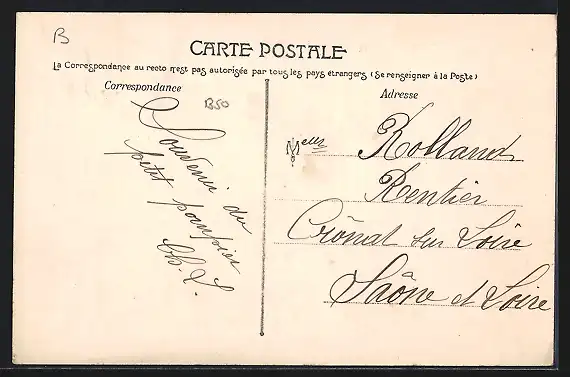 B
CARTE POSTALE
La Correspondance au recto n'est pas autorisée par tous les pays étrangers (Se renseigner à la Poste)
Correspondance
B50
Souvenir du
petit pompier
Ch. L.
Adresse
Melle Rolland
Rentier
Crônat sur Loire
Saône et Loire